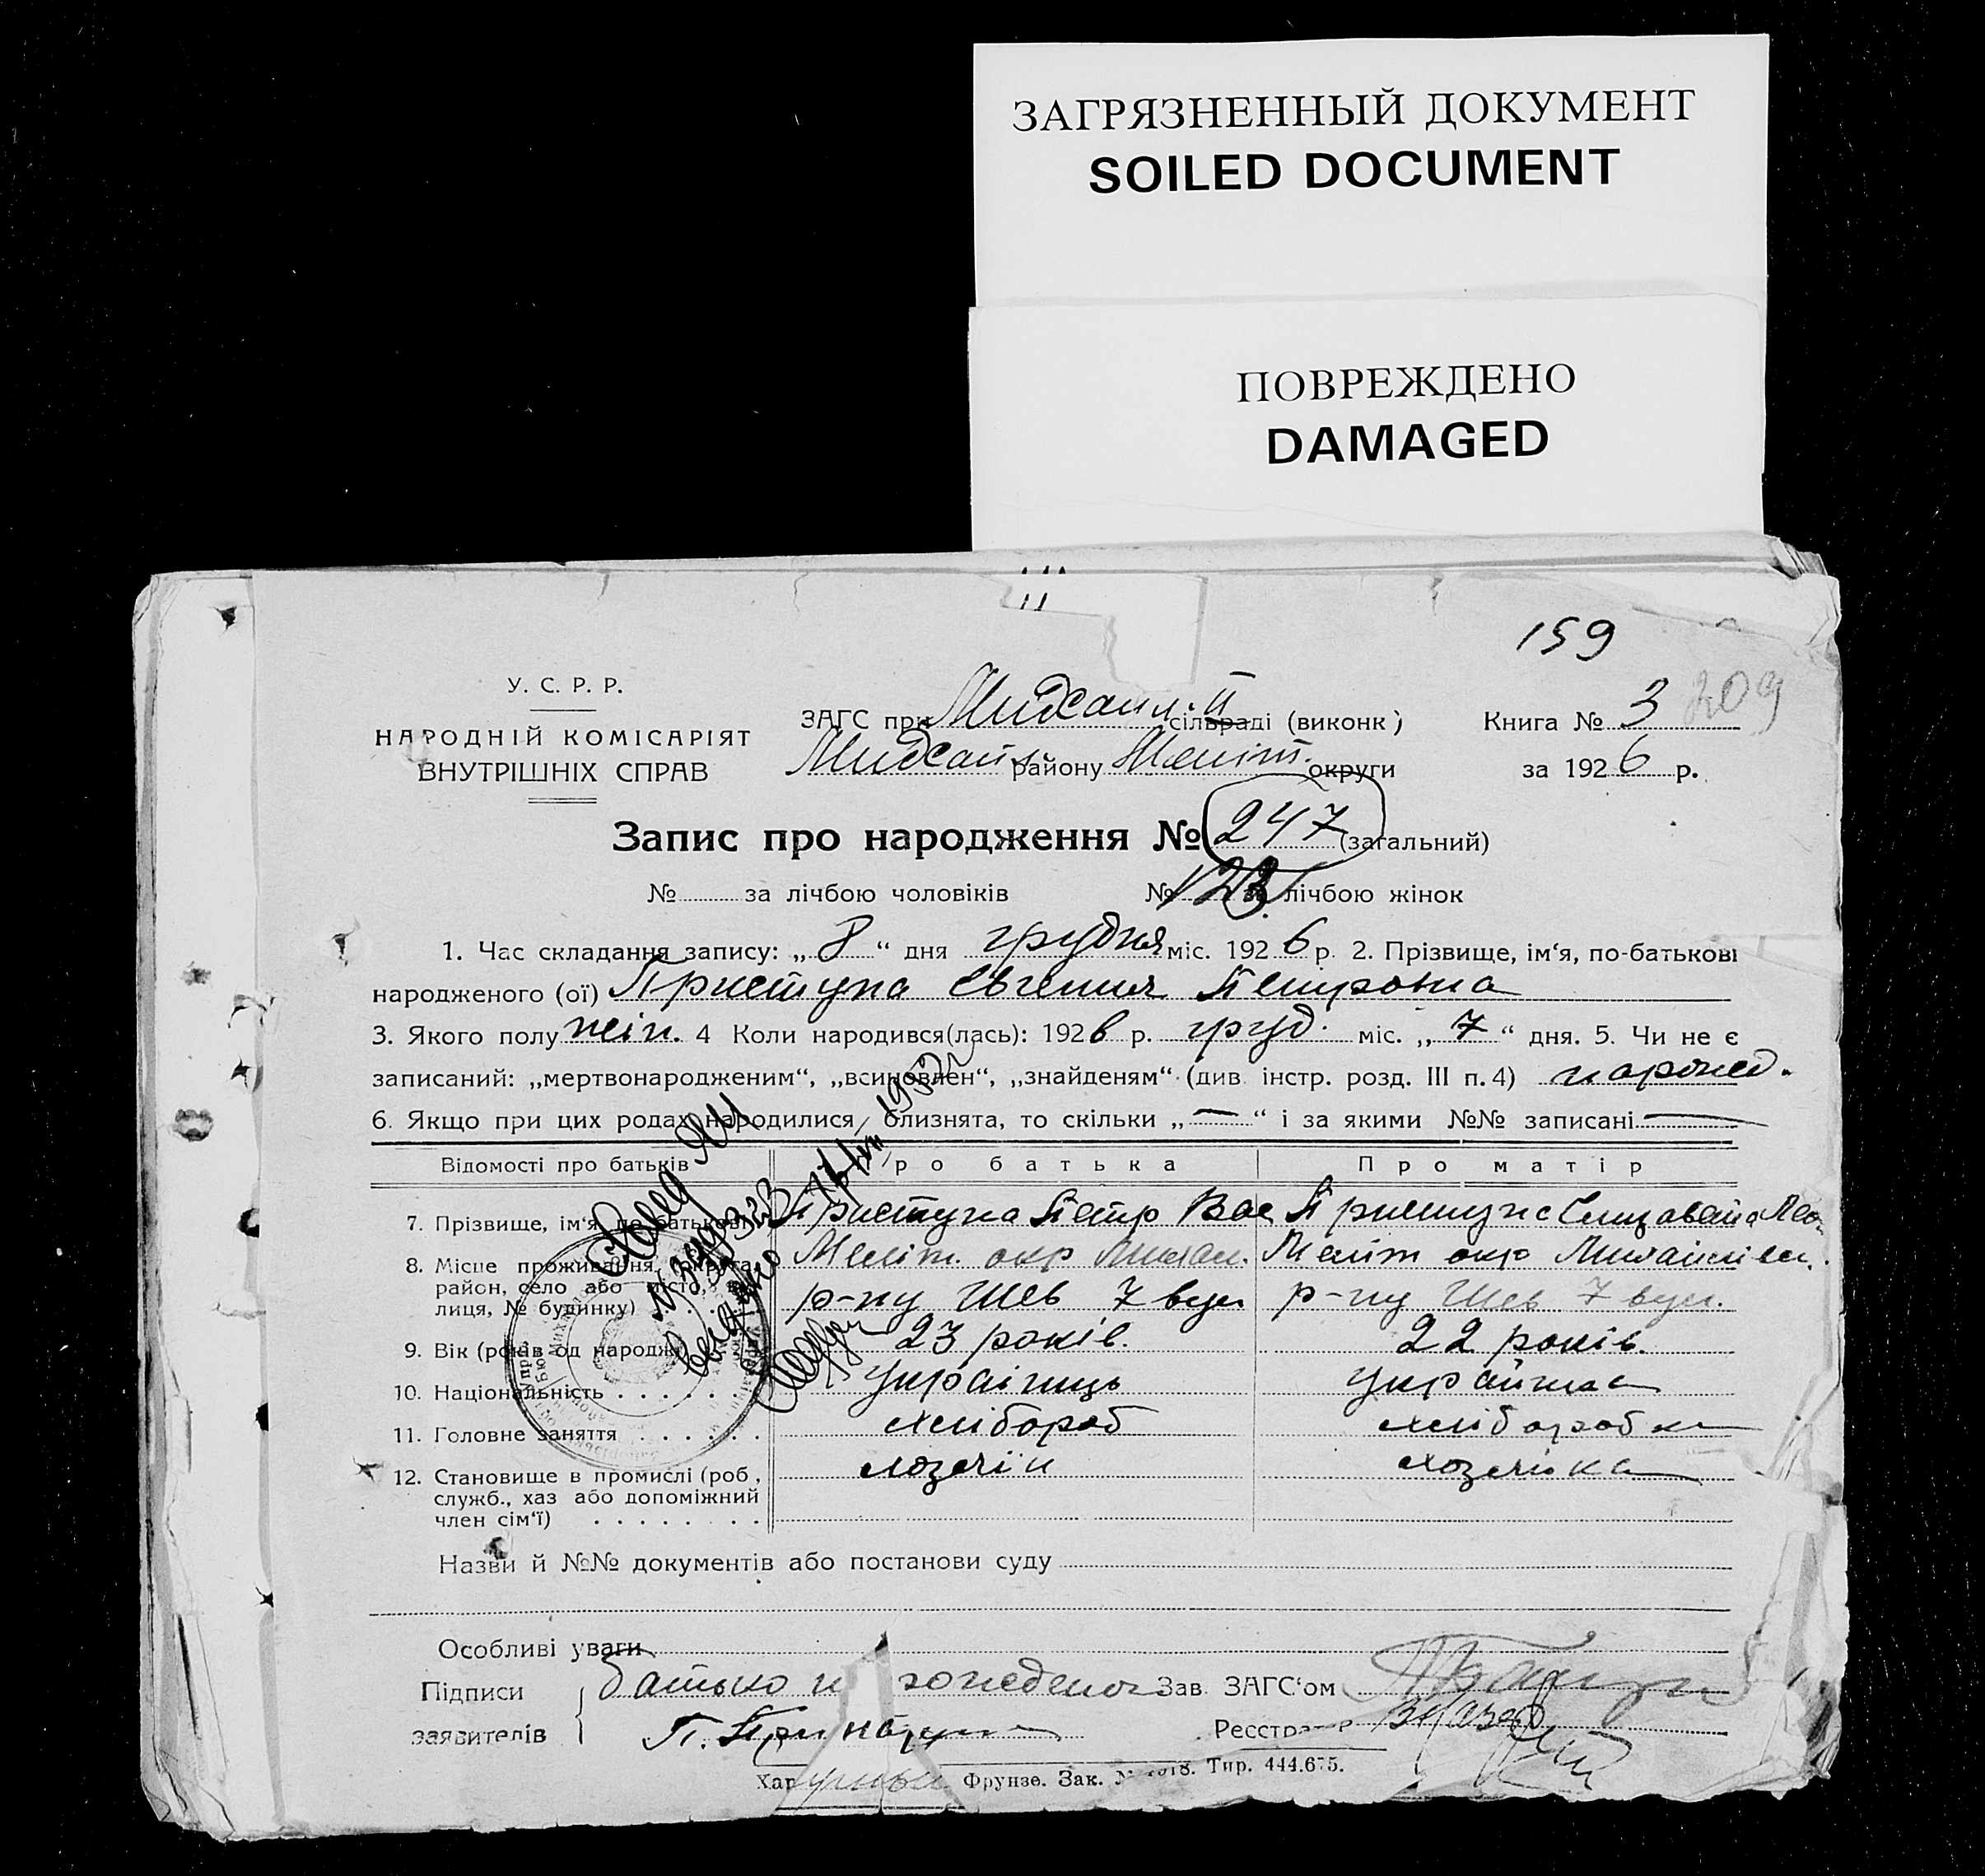 ЗАГРЯЗНЕННЫЙ ДОКУМЕНТ
SOILED DOCUMENT
ПОВРЕЖДЕНО
DAMAGED
159
У. С. Р. Р.
НАРОДНІЙ КОМІСАРІЯТ
ВНУТРІШНІХ СПРАВ
ЗАГС при Михайл. II сільраді (виконк)
Михайл району Меліт. округи
Книга № 3 209
за 1926 р.
Запис про народження № 247 (загальний)
№ за лічбою чоловіків № 123 за лічбою жінок
1. Час складання запису: „8“ дня грудня міс. 1926 р. 2. Прізвище, ім‘я, по-батькові
народженого (ої) Приступа Євгения Петровна
3. Якого полу жін. 4 Коли народився(лась): 1926 р. груд. міс. „7“ дня. 5. Чи не є
записаний: „мертвонародженим“, „всиновлен“, „знайденям“ (див. інстр. розд. III п. 4) народжед.
6. Якщо при цих родах народилися близнята, то скільки „—“ і за якими №№ записані —
Відомості про батьків Про батька Про матір
7. Прізвище, ім‘я, по батькові Приступа Петр Вас Приступа Елизавета
8. Місце проживання, округа, Меліт. окр Михай. Меліт окр Михайлівськ.
район, село або місто, ву-
лиця, № будинку) р-ну Шев 7 вул р-ну Шев 7 вул.
9. Вік (років од народж.) 23 років. 22 років.
10. Національність Українець Українка
11. Головне заняття хлібороб хлібборобка
12. Становище в промислі (роб., хозяїн хозяйка
служб., хаз або допоміжний
член сім‘ї)
Назви й №№ документів або постанови суду
Особливі уваги
Підписи
заявителів
батько
П.
Зав. ЗАГС‘ом
Реєстратор
Хар Фрунзе. Зак. Тир. 444.675.